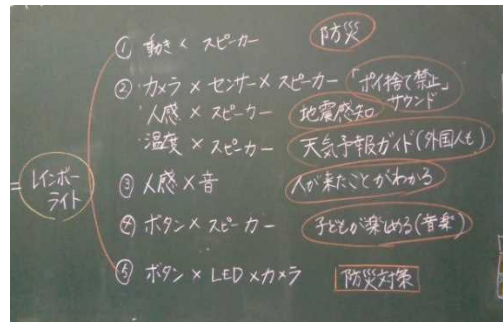 ① 動き × スピーカー 防災
② カメラ × センサー × スピーカー 「ポイ捨て禁止」サウンド
人感 × スピーカー 地震感知
温度 × スピーカー 天気予報ガイド(外国人も)
= レインボーライト
③ 人感 × 音 人が来たことがわかる
④ ボタン × スピーカー 子どもが楽しめる(音楽)
⑤ ボタン × LED × カメラ 防災対策